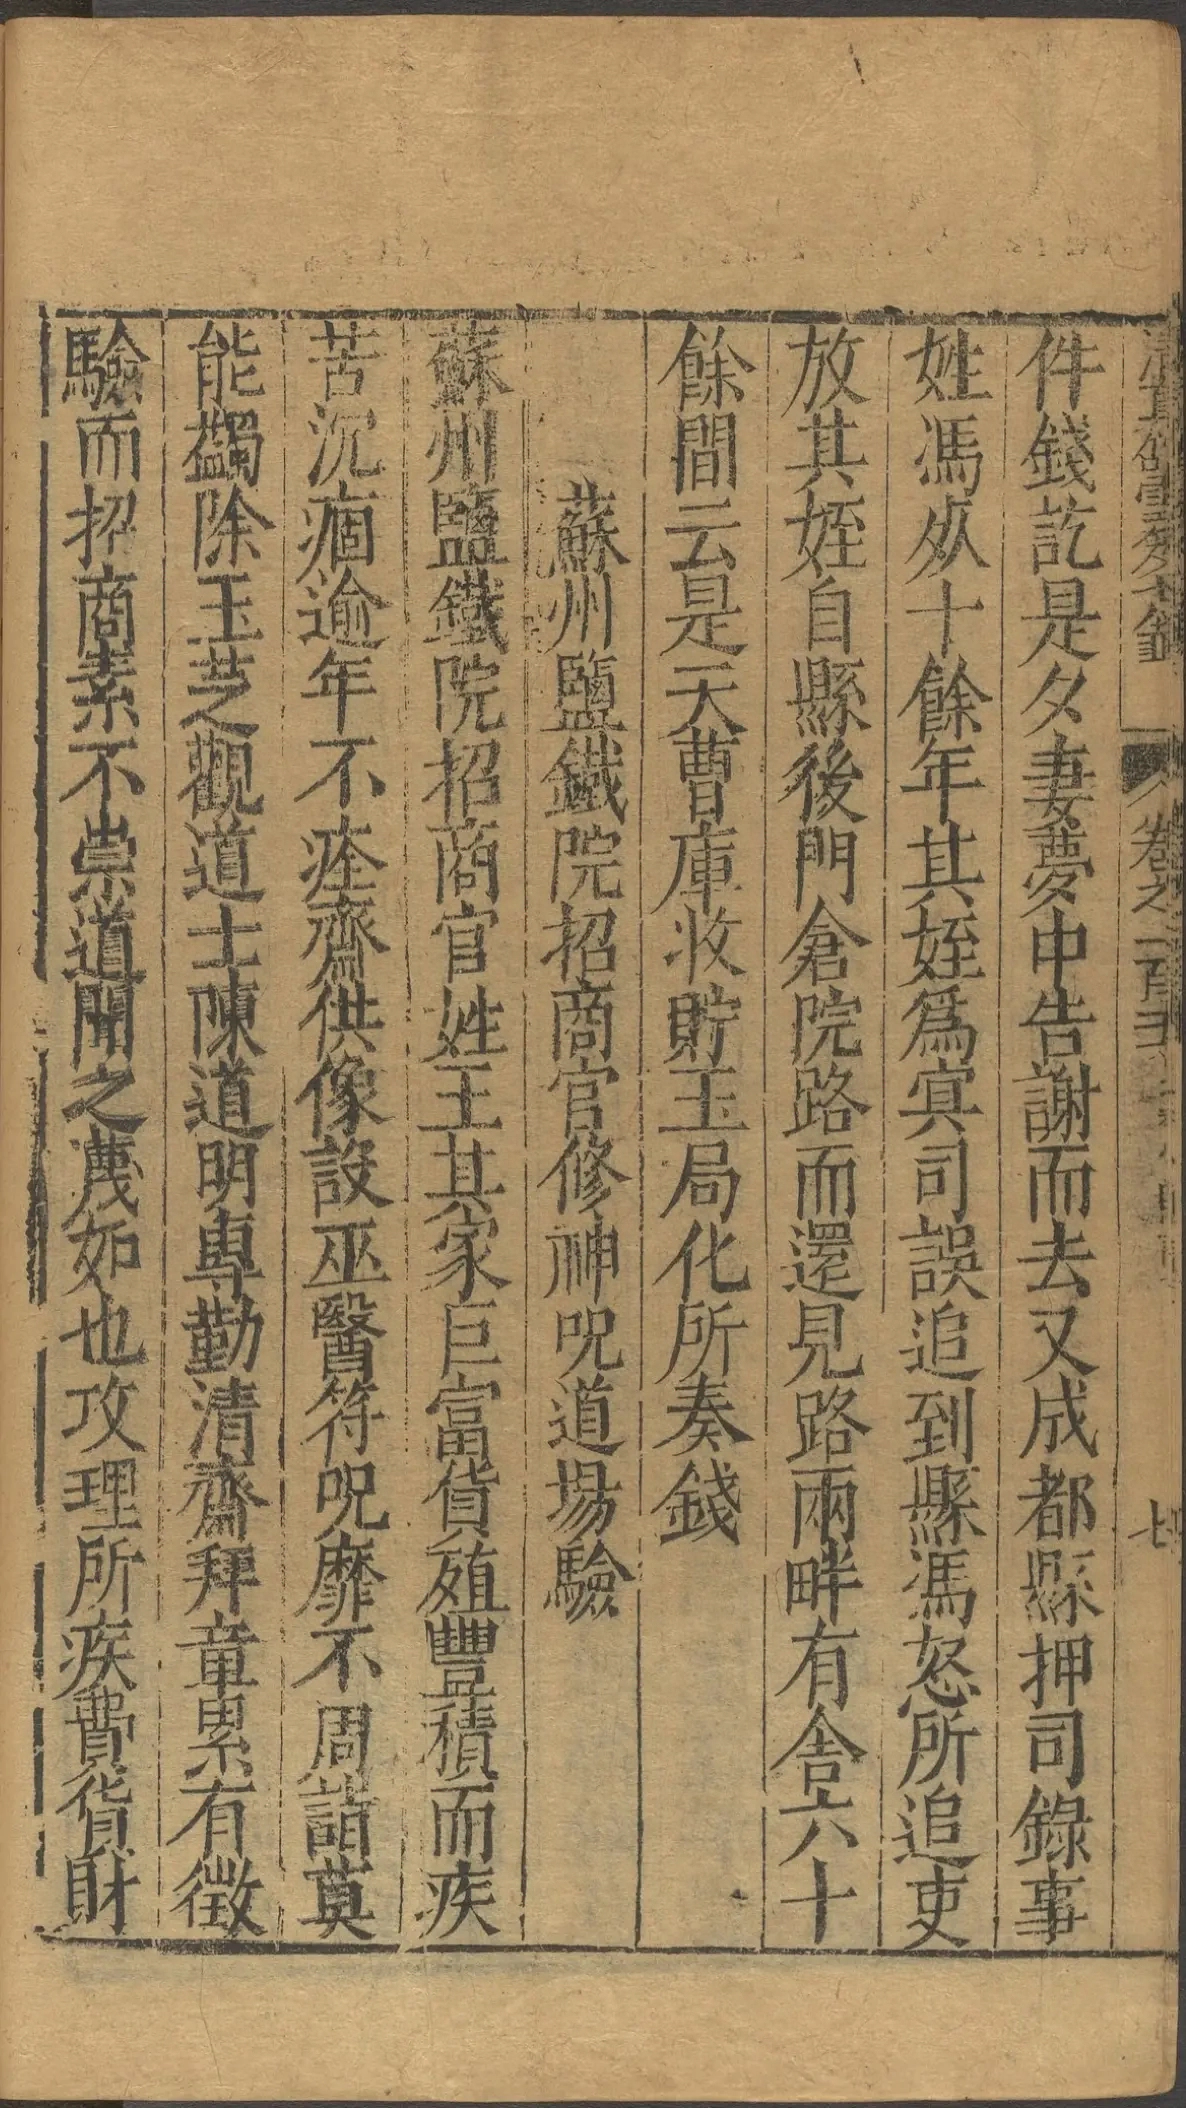 件錢訖是夕妻夢中告謝而去又成都縣押司錄事
姓馮歿十餘年其姪爲冥司誤追到縣馮怒所追吏
放其姪自縣後門倉院路而還見路兩畔有舍六十
餘間云是天曹庫收貯玉局化所奏錢
蘇州鹽鐵院招商官修神呪道場驗
蘇州鹽鐵院招商官姓王其家巨富貨殖豐積而疾
苦沉痼逾年不痊齋供像設巫醫符呪靡不周詣莫
能蠲除玉芝觀道士陳道明專勤清齋拜章累有徵
驗而招商素不崇道聞之蔑如也攻理所疾費貨財
卷之一百
七